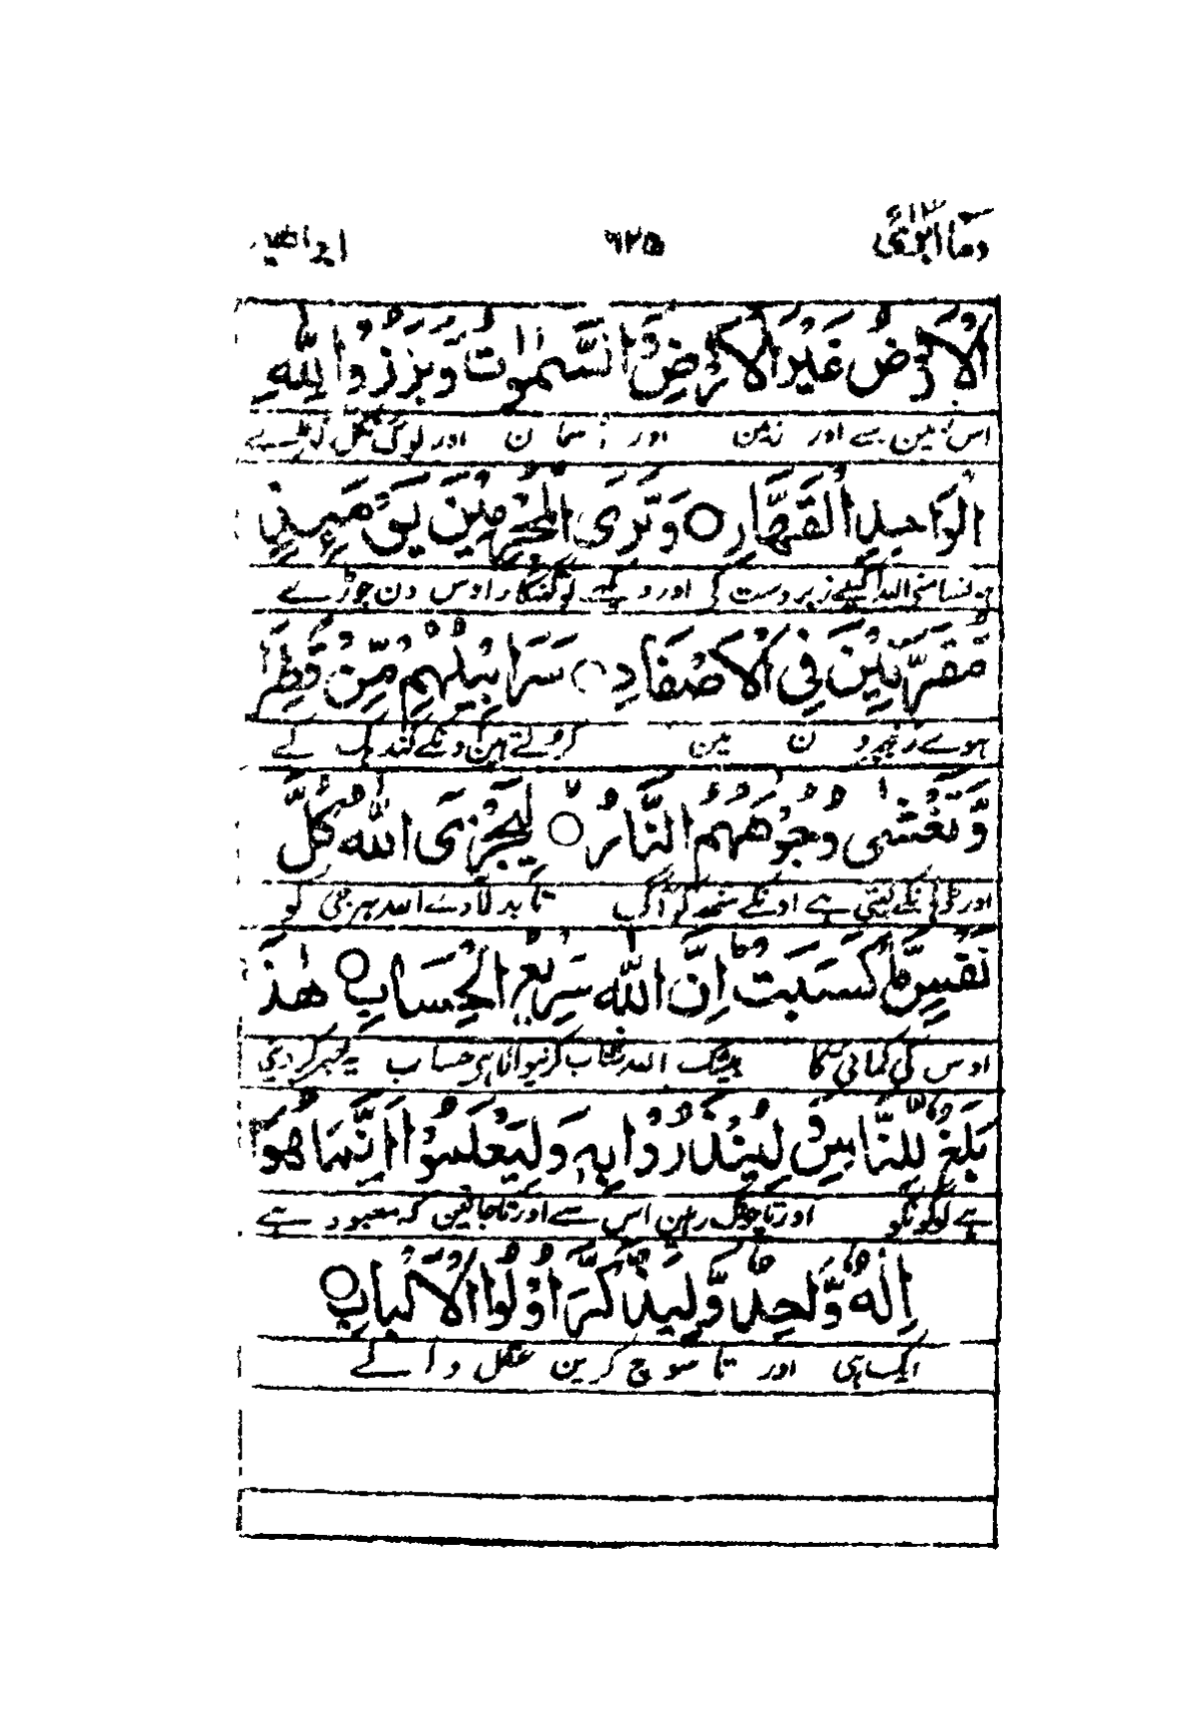 وما ابرئ ١٣ ٦٢٥ ابراهيم
الْاَرْضُ غَيْرَ الْاَرْضِ وَالسَّمٰوٰتُ وَبَرَزُوْا لِلّٰهِ
اس زمین سے اور زمین اور اسمان اور لوگ نکل کھڑے
الْوَاحِدِ الْقَهَّارِ ○ وَتَرَى الْمُجْرِمِيْنَ يَوْمَئِذٍ
سامنی اللہ اکیلے زبردست کی اور دیکھے تو گنہگار اوس دن جوڑے
مُّقَرَّنِيْنَ فِي الْاَصْفَادِ ○ سَرَابِيْلُهُمْ مِّنْ قَطِرَا
ہوے زنجیرو ن مین کرتے اونکے گندہک کے
وَّتَغْشٰى وُجُوْهَهُمُ النَّارُ ○ لِيَجْزِىَ اللّٰهُ كُلَّ
اور ڈہانکے لیتی ہے اونکے منھ کو آگ تا بدلا دے اللہ ہر جی کو
نَفْسٍ مَّا كَسَبَتْ اِنَّ اللّٰهَ سَرِيْعُ الْحِسَابِ ○ هٰذَا
اوس کی کمائی کا بیشک اللہ شتاب کرنیوالا ہی حساب یہ خبر کردینی
بَلٰغٌ لِّلنَّاسِ وَلِيُنْذَرُوْا بِهٖ وَلِيَعْلَمُوْا اَنَّمَا هُوَ
ہے لوگونکو اور تا چونک رہین اس سے اور تا جانین کہ معبود ہے
اِلٰهٌ وَّاحِدٌ وَّلِيَذَّكَّرَ اُولُوا الْاَلْبَابِ ○
ایک ہی اور تا سوچ کرین عقل والے